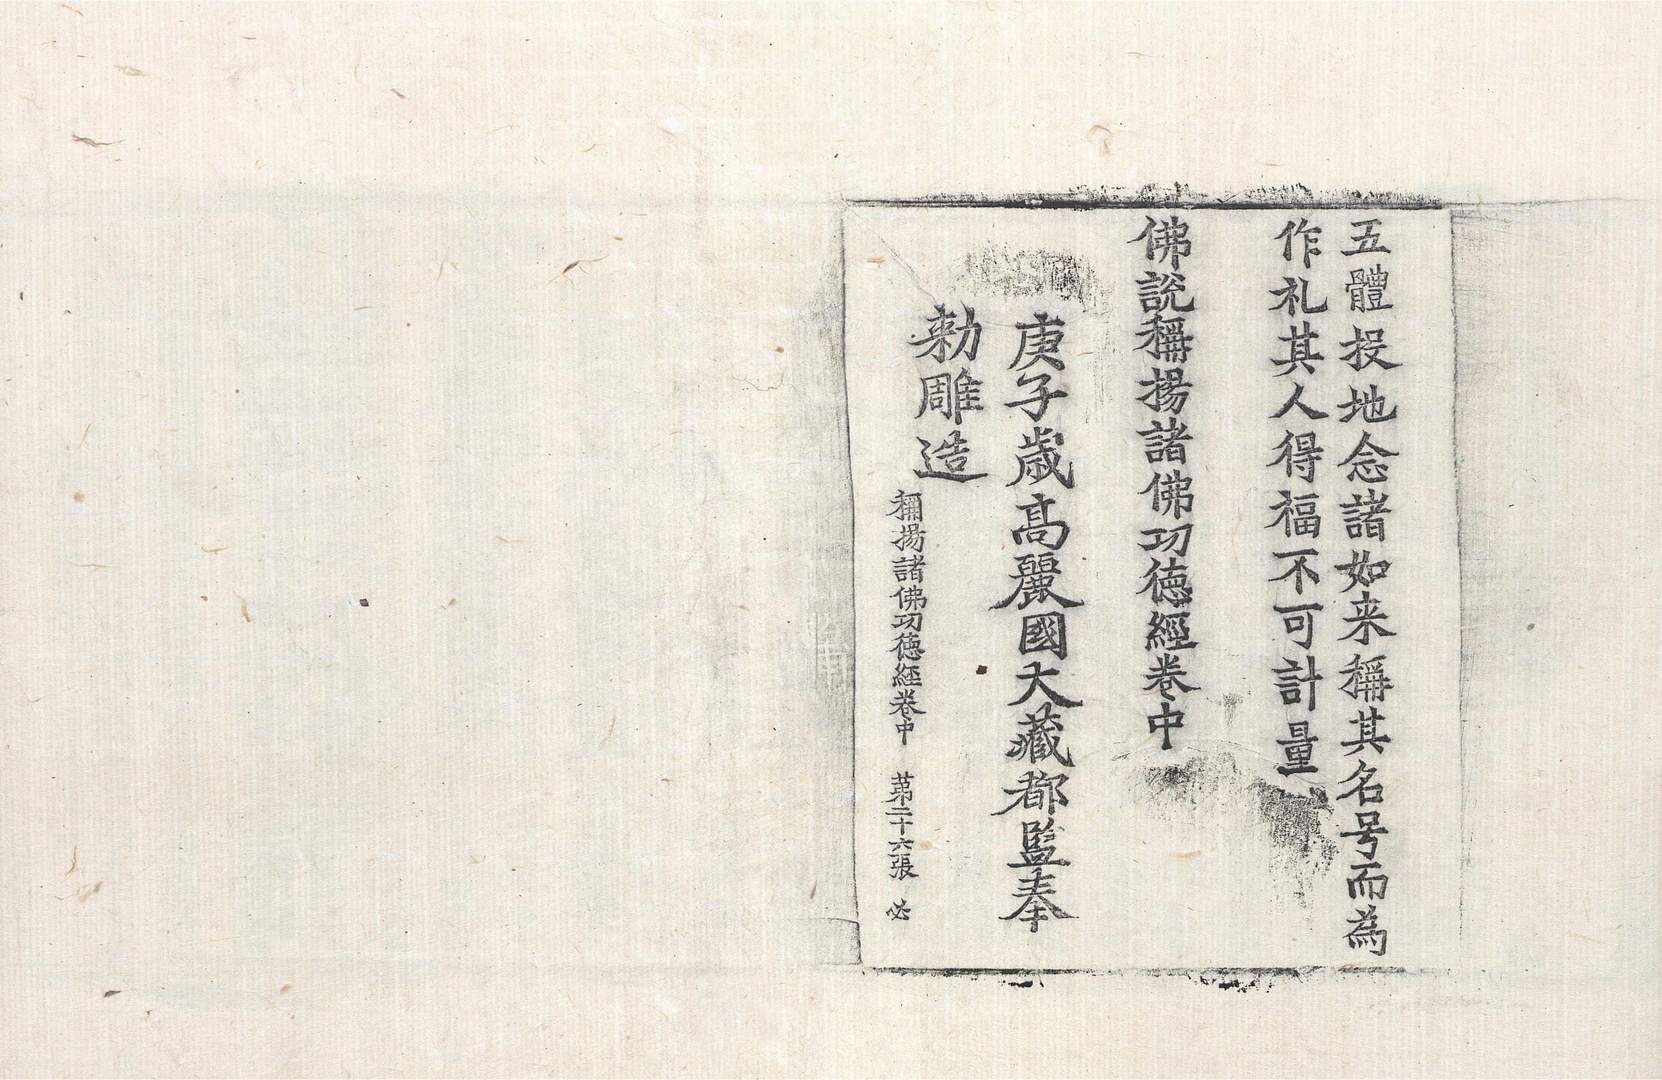 五體投地念諸如来稱其名号而為
作礼其人得福不可計量
佛說稱揚諸佛功德經卷中
庚子歲高麗國大藏都監奉
勅雕造
稱揚諸佛功德經卷中 苐二十六張 必